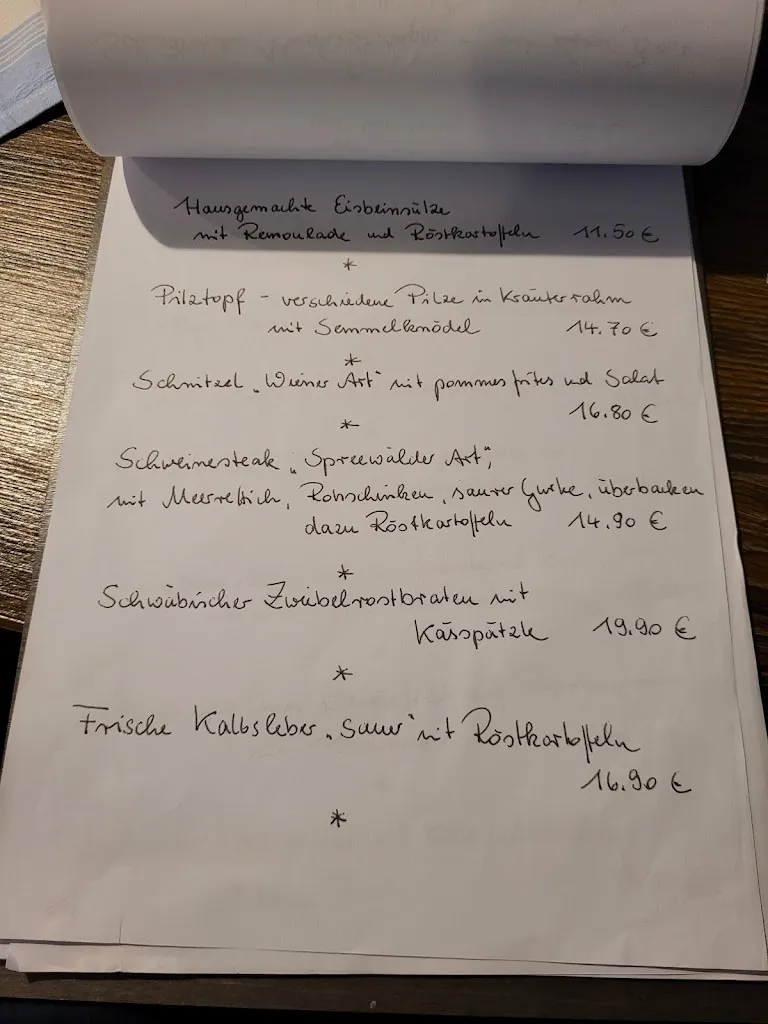 Hausgemachte Eisbeinsülze
mit Remoulade und Röstkartoffeln 11.50 €
*
Pilztopf - verschiedene Pilze in Kräuterrahm
mit Semmelknödel 14.70 €
*
Schnitzel „Wiener Art" mit pommes frites und Salat
16.80 €
*
Schweinesteak „Spreewälder Art",
mit Meerrettich, Rohschinken, saurer Gurke, überbacken
dazu Röstkartoffeln 14.90 €
*
Schwäbischer Zwiebelrostbraten mit
Kässpätzle 19.90 €
*
Frische Kalbsleber „sauer" mit Röstkartoffeln
16.90 €
*